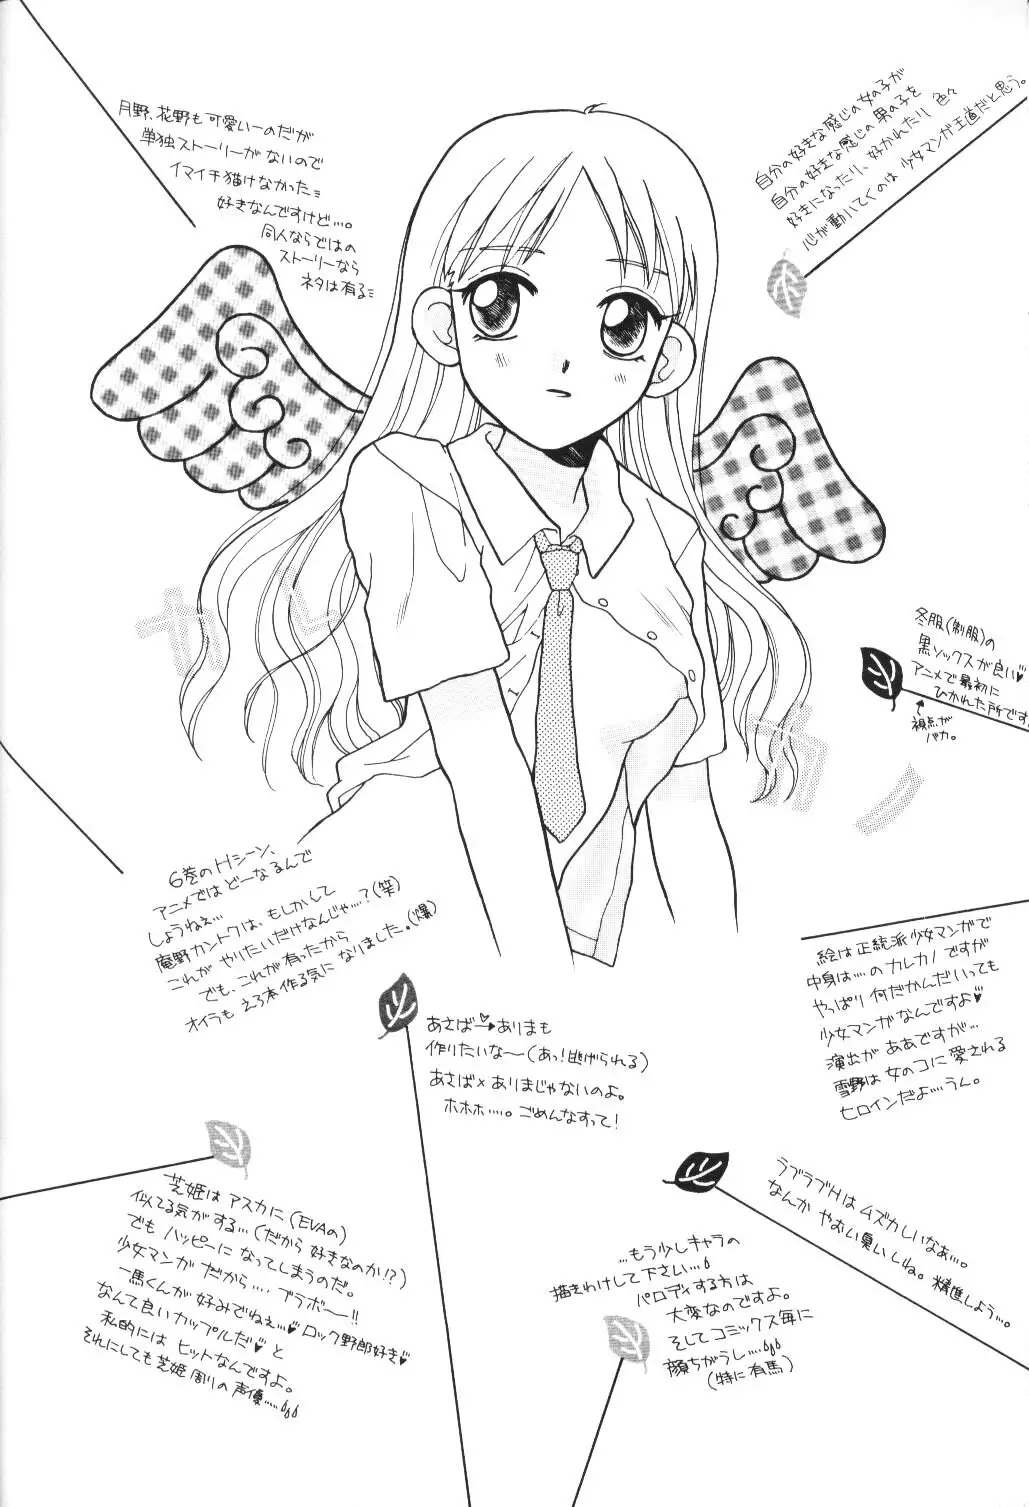 自分の好きな感じの女の子が
自分の好きな感じの男の子を
好きになったり、好かれたり 色々
心が動いてくのは 少女マンガ王道だと思う。
月野、花野も可愛いーのだが
単独ストーリーがないので
イマイチ描けなかった
好きなんですけど…。
同人ならではの
ストーリーなら
ネタは有る
冬服(制服)の
黒ソックスが良い♥
アニメで最初に
ひかれた所です
↑
視点が
バカ。
6巻のHシーン、
アニメではどーなるんで
しょうねぇ…
庵野カントクは、もしかして
これが やりたいだけなんじゃ…?(笑)
でも、これが有ったから
オイラも えろ本作る気に なりました。(爆)
絵は正統派少女マンガで
中身は…のカレカノですが
やっぱり何だかんだいっても
少女マンガなんですよ♥
演出が ああですが…
雪野は 女のコに愛される
ヒロインだよ…うん。
あさば→ありまも
作りたいな〜(あっ!逃げられる)
あさば×ありまじゃないのよ。
ホホホ…。ごめんなすって!
ラブラブHはムズかしいなぁ…。
なんか やおい臭いしね。精進しよう…。
芝姫は アスカに(EVAの)
似てる気がする…(だから好きなのか!?)
でも ハッピーに なってしまうのだ。
少女マンガ だから… ブラボー!!
一馬くんが 好みでねぇ…♥ロック野郎好き♥
なんて良いカップルだ♥と
私的には ヒットなんですよ。
それにしても芝姫周りの声優…
…もう少しキャラの
描きわけして下さい…
パロディする方は
大変なのですよ。
そしてコミックス毎に
顔ちがうし…
(特に有馬)